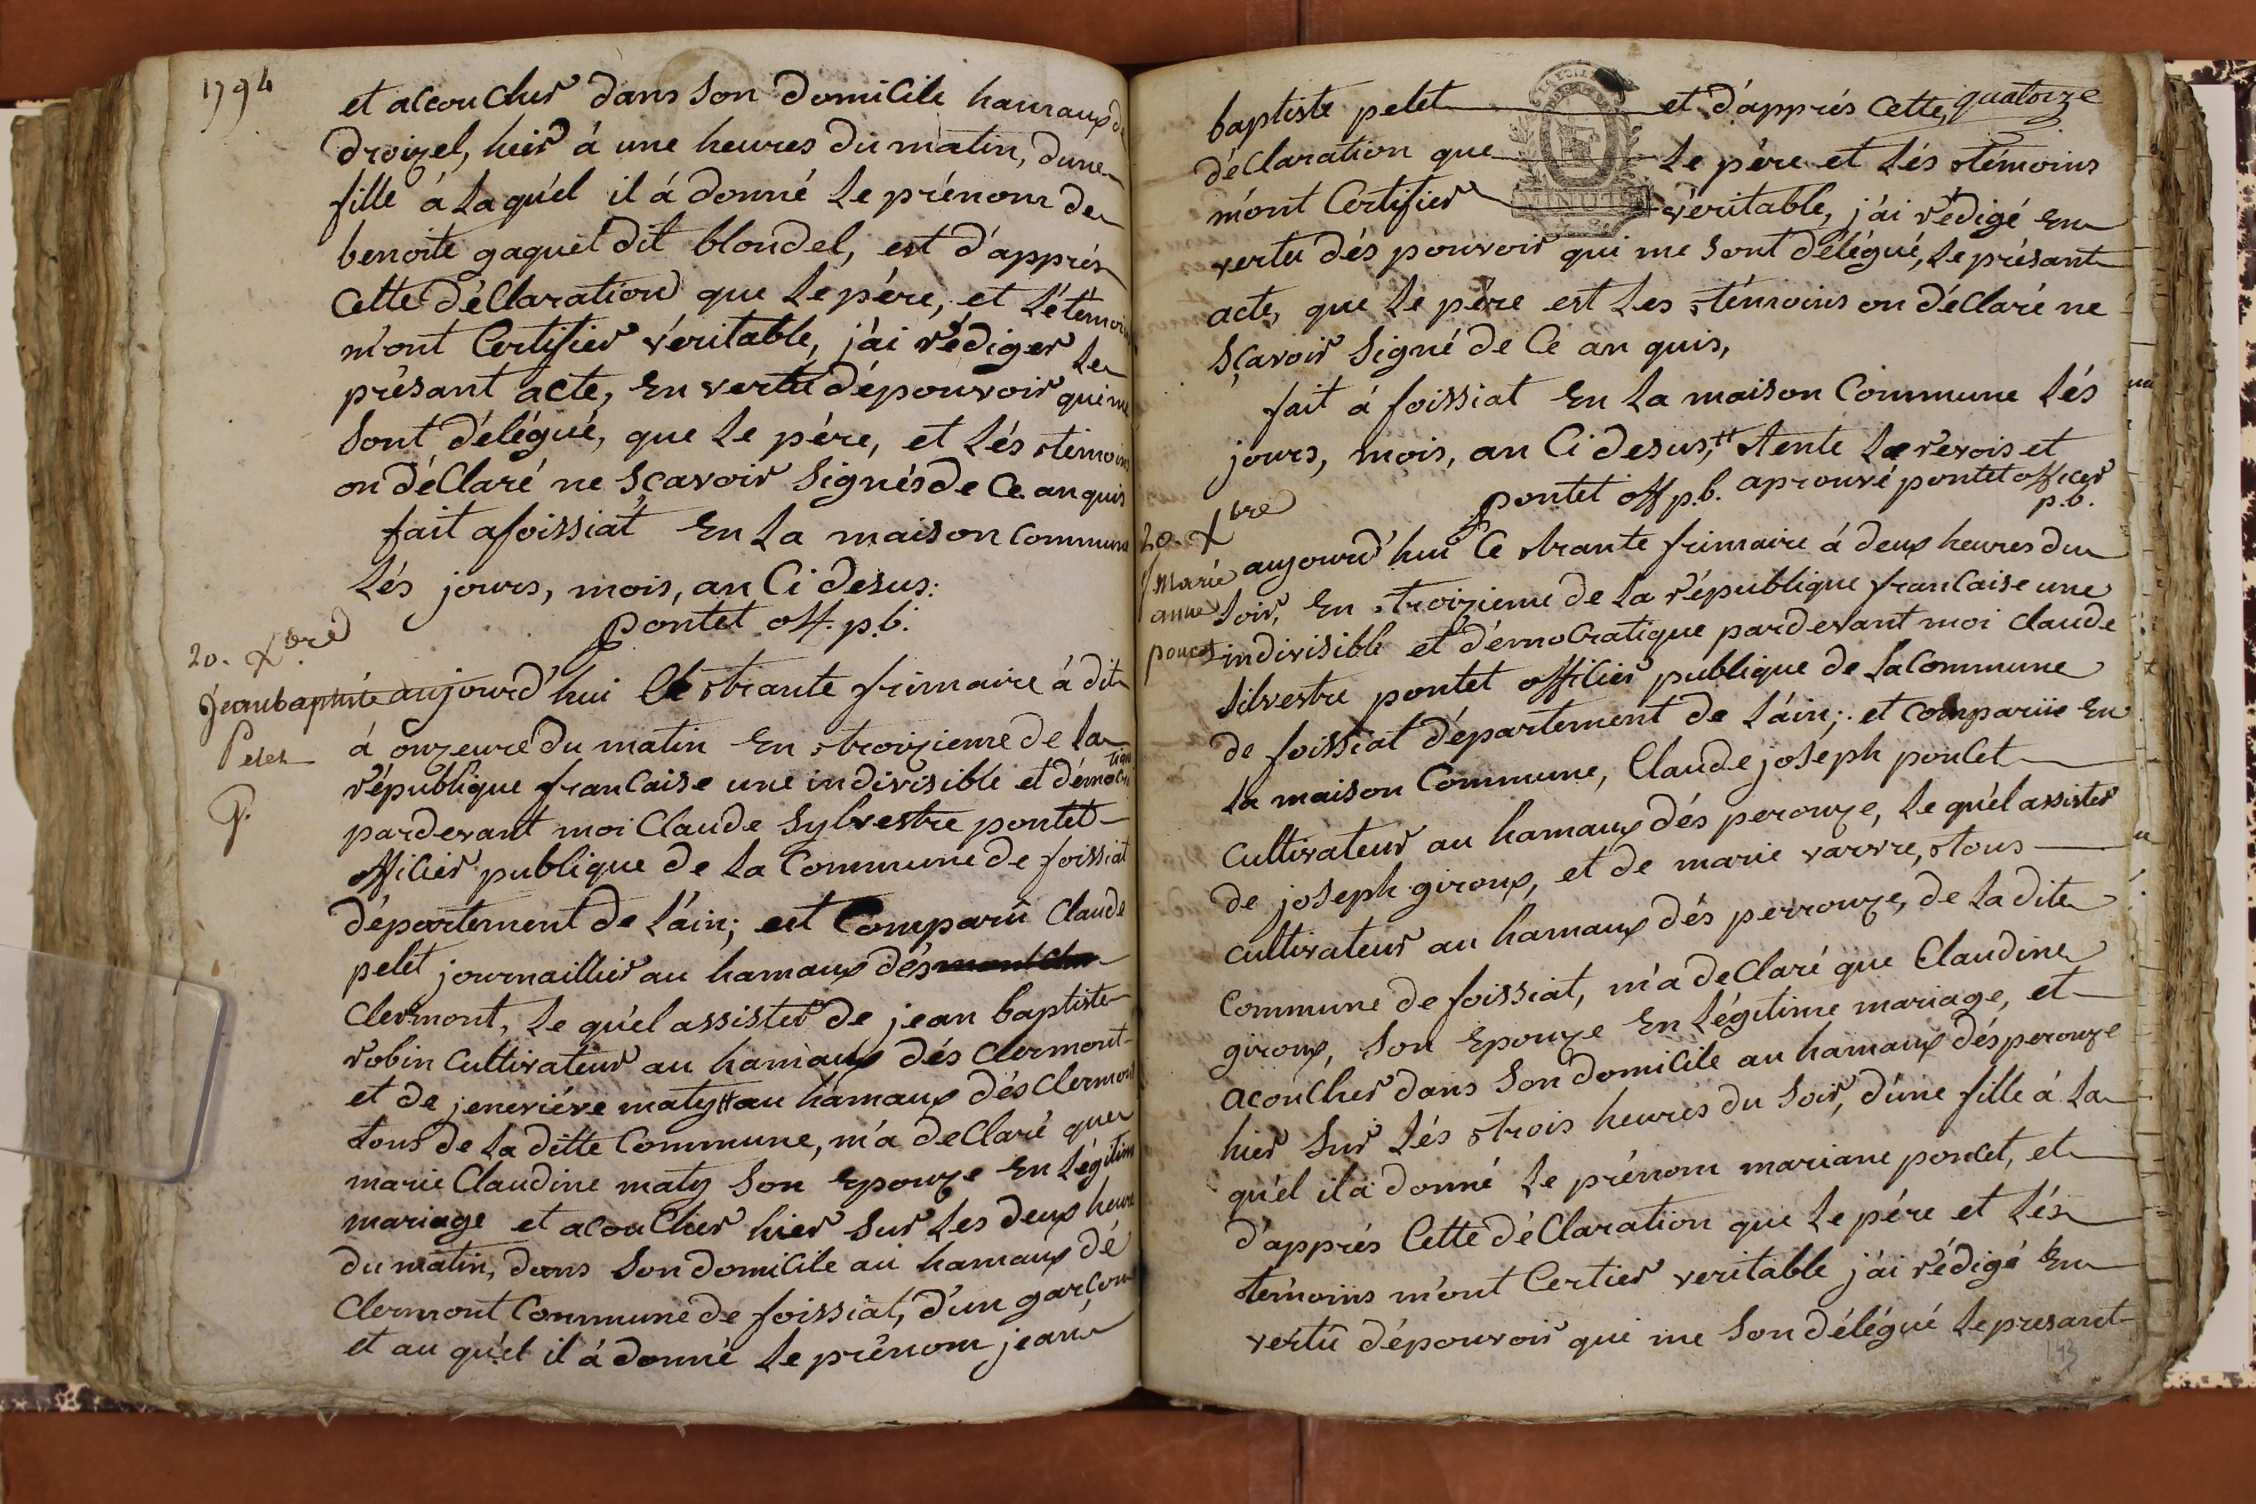 1794
et accoucher dans son domicile hamaux de
droizel, heir á une heures du matin, dune
fille á laqu'el il á donné le prénom de
benoite gaquet dit blondel, est d'apprés
cette déclaration que le pére, et lé témoin
m'ont Certifier véritable, j'ai rédiger le
présant acte, en vertu dépouvoir qui me
sont délégué, que le pére, et lés témoins
on déclaré ne sçavoir signés de ce an quis
fait a foissiat en la maison commune
lés jours, mois, an Ci desus:
pontet off. p.b.
20. Xbre
Jeanbaptiste
Pelet
P.
aujourd'hui Ce trante frimaire á dit
á onzeure du matin en troizieme de la
république francaise une indivisible et démocratique
pardevant moi Claude Sylvestre pontet
officier publique de la Commune de foissiat
département de l'ain; est Comparû Claude
pelet journaillier au hamaux dés
Clermont, le qu'el assister de jean baptiste
robin cultivateur au hamaux dés clermont
et de jeneviéve maty # au hamaux dés clermont
tous de la ditte Commune, m'a declaré que
marie Claudine maty son Epouze en légitime
mariage et acoucher hier sur les deux heure
du matin, dans son domicile au hamaux dé
clermont Commune de foissiat, d'un garçon
et au qu'el il á donné le prénom jean
quatorze
baptiste pelet et d'apprés Cette,
déclaration que le pére et lés témoins
m'ont Certifier véritable, j'ai rédigé en
MINUTE
vertu dés pouvoir qui me sont délégué, le présant
acte, que le pére est les témoins on déclaré ne
sçavoir signé de Ce an quis,
fait á foissiat en la maison Commune lés
jours, mois, an Ci desus, # tente le revois et
pontet off p.b. aprouvé pontet officer
p.b.
20. Xbre
Marie
anne
poncet
aujourd'hui Ce trante frimaire á deux heures du
soir, en troizieme de la république francaise une
indivisible et démocratique pardevant moi claude
silvestre pontet officier publique de la Commune
de foissiat département de l'ain; et comparüe en
la maison Commune, Claude joseph poncet
cultivateur au hamaux dés perouze, le qu'el assister
de joseph giroux, et de marie varvre, tous
cultivateur au hamaux dés perrouze, de la dite
commune de foissiat, m'a declaré que Claudine
giroux, son Epouze en légitime mariage, et
acoucher dans son domicile au hamaux dés perouze
hier sur lés trois heures du soir, d'une fille á la
qu'el il á donné le prénom mariane poncet, et
d'apprés Cette déClaration que le pére et lés
témoins m'ont Certier veritable j'ai rédigé en
vertu dépouvoir qui me son délégué le presant
143